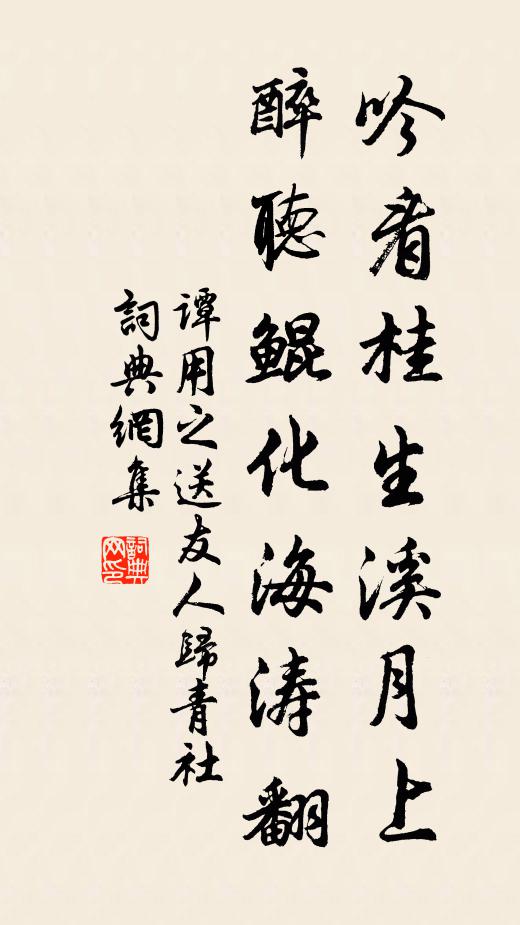 吟看桂生溪月上
醉聽鯤化海濤翻
譚用之送友人歸青社
詞典網集
詞典网印